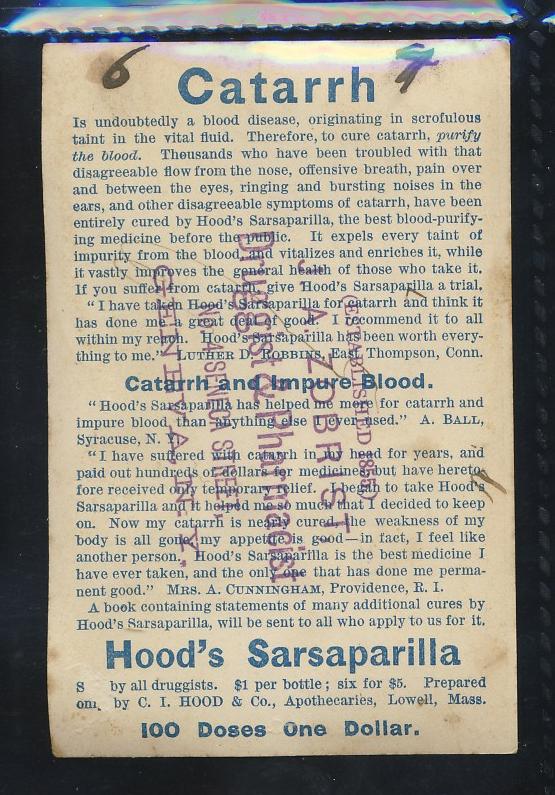 6
4
Catarrh
Is undoubtedly a blood disease, originating in scrofulous
taint in the vital fluid. Therefore, to cure catarrh, purify
the blood. Thousands who have been troubled with that
disagreeable flow from the nose, offensive breath, pain over
and between the eyes, ringing and bursting noises in the
ears, and other disagreeable symptoms of catarrh, have been
entirely cured by Hood's Sarsaparilla, the best blood-purify-
ing medicine before the public. It expels every taint of
impurity from the blood, and vitalizes and enriches it, while
it vastly improves the general health of those who take it.
If you suffer from catarrh, give Hood's Sarsaparilla a trial.
"I have taken Hood's Sarsaparilla for catarrh and think it
has done me a great deal of good. I recommend it to all
within my reach. Hood's Sarsaparilla has been worth every-
thing to me." LUTHER D. ROBBINS, East Thompson, Conn.
Catarrh and Impure Blood.
"Hood's Sarsaparilla has helped me more for catarrh and
impure blood than anything else I ever used." A. BALL,
Syracuse, N. Y.
"I have suffered with catarrh in my head for years, and
paid out hundreds of dollars for medicines, but have hereto-
fore received only temporary relief. I began to take Hood's
Sarsaparilla and it helped me so much that I decided to keep
on. Now my catarrh is nearly cured, the weakness of my
body is all gone, my appetite is good—in fact, I feel like
another person. Hood's Sarsaparilla is the best medicine I
have ever taken, and the only one that has done me perma-
nent good." MRS. A. CUNNINGHAM, Providence, R. I.
A book containing statements of many additional cures by
Hood's Sarsaparilla, will be sent to all who apply to us for it.
Hood's Sarsaparilla
S by all druggists. $1 per bottle; six for $5. Prepared
by C. I. HOOD & Co., Apothecaries, Lowell, Mass.
100 Doses One Dollar.
(ESTABLISHED 1855)
J. A. ZOBRIST
Druggist & Pharmacist
STREET,
GENEVA, N. Y.